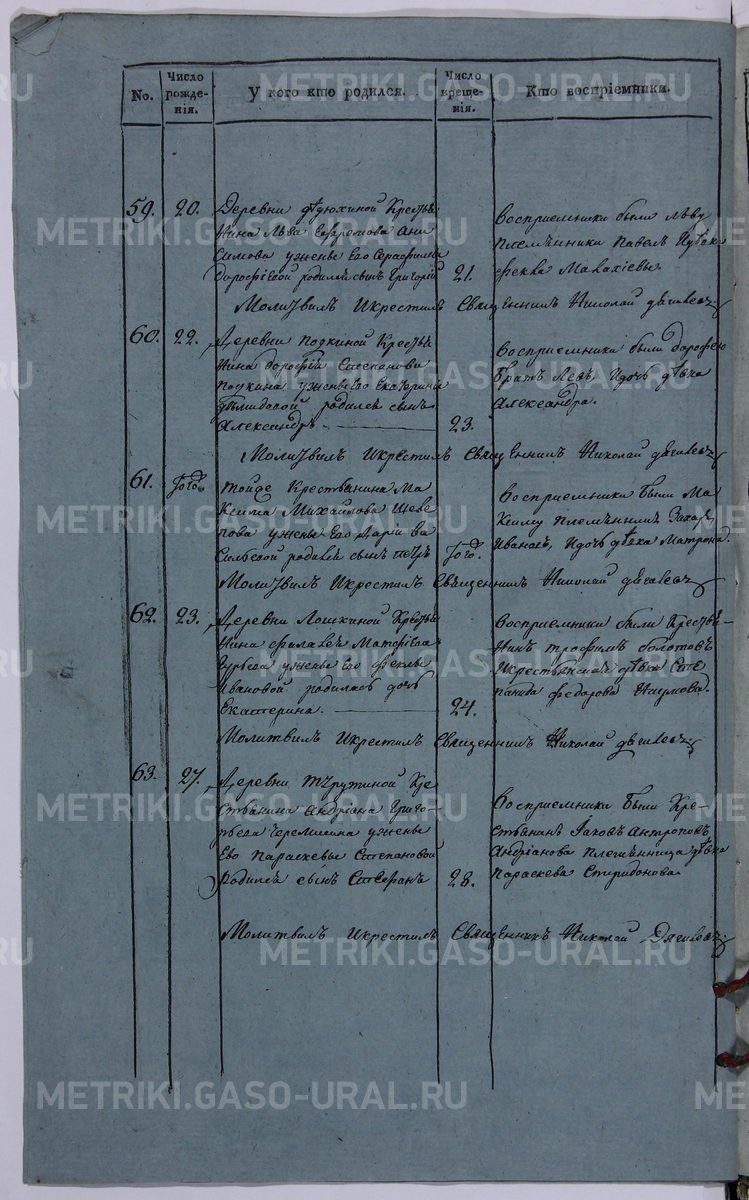 No.
Число рожде-нія.
У кого кто родился.
Число креще-нія.
Кто воспріемники.
59. 20.
Деревни дѣдюхиной Крестья
Нина Льва Ефремова Ани
Симова ужены Его Серафима
Дорофѣевой родился сынъ Григорій 21.
Восприемники были Льву
племѣнники Павелъ Идѣвка
фекла Малахіевы.
Молитвилъ Икрестилъ Священникъ Николай дягилевъ
60. 22.
Деревни
Нина дорофѣй Степанова
ужены Его Екатерины
родился сынъ
Александръ 23.
Восприемники были дорофею
Братъ Левъ Идочь дѣвка
Александра.
Молитвилъ Икрестилъ Священникъ Николай дягилевъ
61. Того
тойже Крестьянина Ма
ксима Михайлова Шеве
лова ужены Его Дарiи Ва
Сильевой родился сынъ петръ Того.
Восприемники Были Ма
Ксиму племѣнникъ Захаръ
Ивановъ, Идочь дѣвка Матрона.
Молитвилъ Икрестилъ Священникъ Николай дягилевъ
62. 23.
Деревни Лошкиной Крестья
Нина Матфѣева
Гурьева ужены Его феклы
Ивановой родилась дочь
Екатерина. 24.
Восприемники были Крестья-
Нинъ трофимъ болотовъ
Икрестьянская дѣвка Сте
панида федорова Наумова.
Молитвилъ Икрестилъ Священникъ Николай дягилевъ
63. 27.
Деревни Кре
Стьянина Андріана Григо
рьева Черемисина ужены
Его Параскевы Степановой
Родился сынъ Стефанъ 28.
Восприемники Были Кре-
Стьянинъ Іаковъ Антроповъ
Андріанова племѣнница дѣвка
Параскева Спиридонова.
Молитвилъ Икрестилъ Священникъ Николай Дягилевъ
METRIKI.GASO-URAL.RU